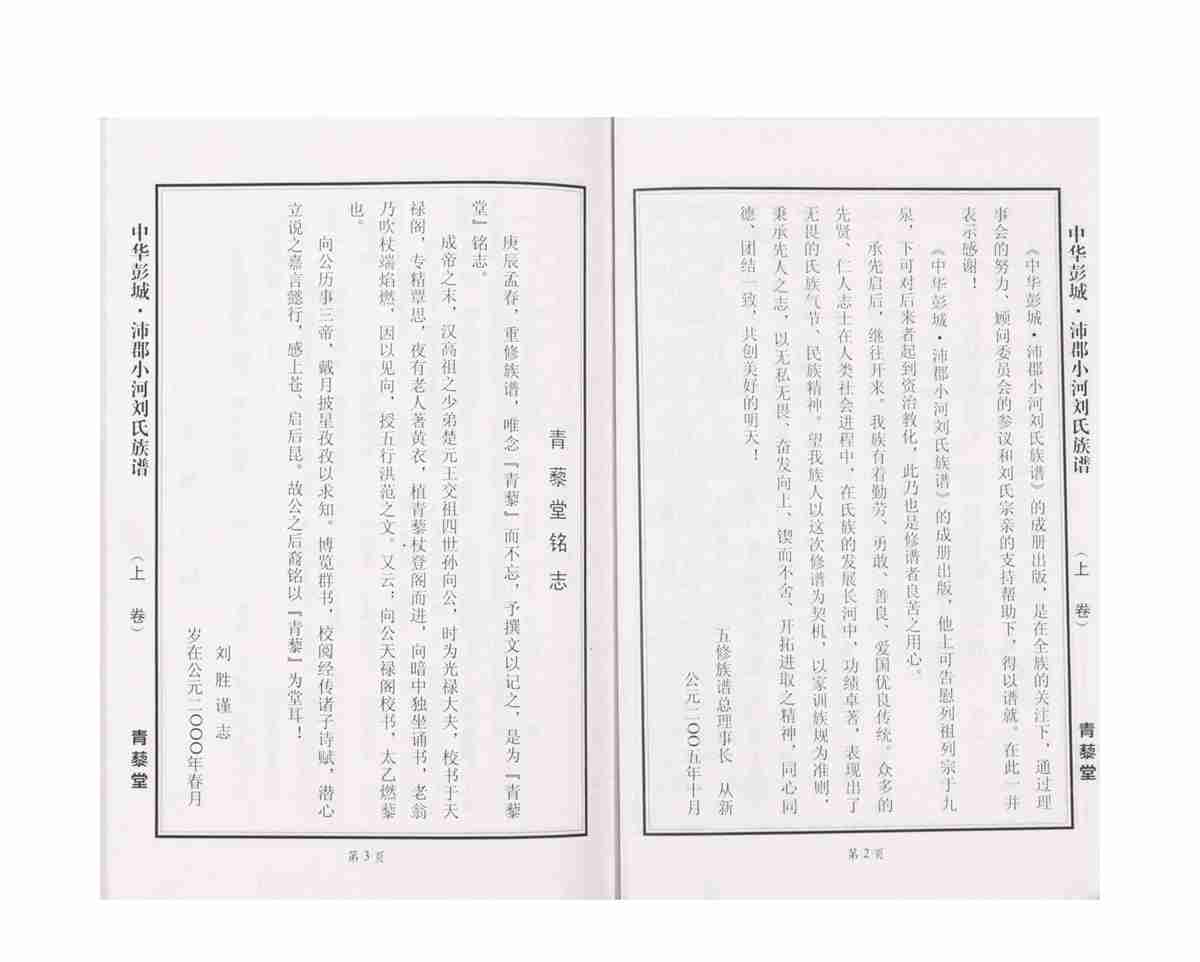 中华彭城·沛郡小河刘氏族谱
（上 卷）
青藜堂
《中华彭城·沛郡小河刘氏族谱》的成册出版，是在全族的关注下，通过理
事会的努力、顾问委员会的参议和刘氏宗亲的支持帮助下，得以谱就。在此一并
表示感谢！
《中华彭城·沛郡小河刘氏族谱》的成册出版，他上可告慰列祖列宗于九
泉，下可对后来者起到资治教化，此乃也是修谱者良苦之用心。
承先启后，继往开来。我族有着勤劳、勇敢、善良、爱国优良传统。众多的
先贤、仁人志士在人类社会进程中，在氏族的发展长河中，功绩卓著，表现出了
无畏的氏族气节、民族精神。望我族人以这次修谱为契机，以家训族规为准则，
秉承先人之志，以无私无畏、奋发向上、锲而不舍、开拓进取之精神，同心同
德、团结一致，共创美好的明天！
五修族谱总理事长 从新
公元二〇〇五年十月
第2页
青藜堂铭志
庚辰孟春，重修族谱，唯念『青藜』而不忘，予撰文以记之，是为『青藜
堂』铭志。
成帝之末，汉高祖之少弟楚元王交祖四世孙向公，时为光禄大夫，校书于天
禄阁，专精覃思，夜有老人著黄衣，植青藜杖登阁而进，向暗中独坐诵书，老翁
乃吹杖端焰燃，因以见向，授五行洪范之文。又云：向公天禄阁校书，太乙燃藜
也。
向公历事三帝，戴月披星孜孜以求知。博览群书，校阅经传诸子诗赋，潜心
立说之嘉言懿行，感上苍、启后昆。故公之后裔铭以『青藜』为堂耳！
刘胜谨志
岁在公元二〇〇〇年春月
中华彭城·沛郡小河刘氏族谱
（上 卷）
青藜堂
第3页